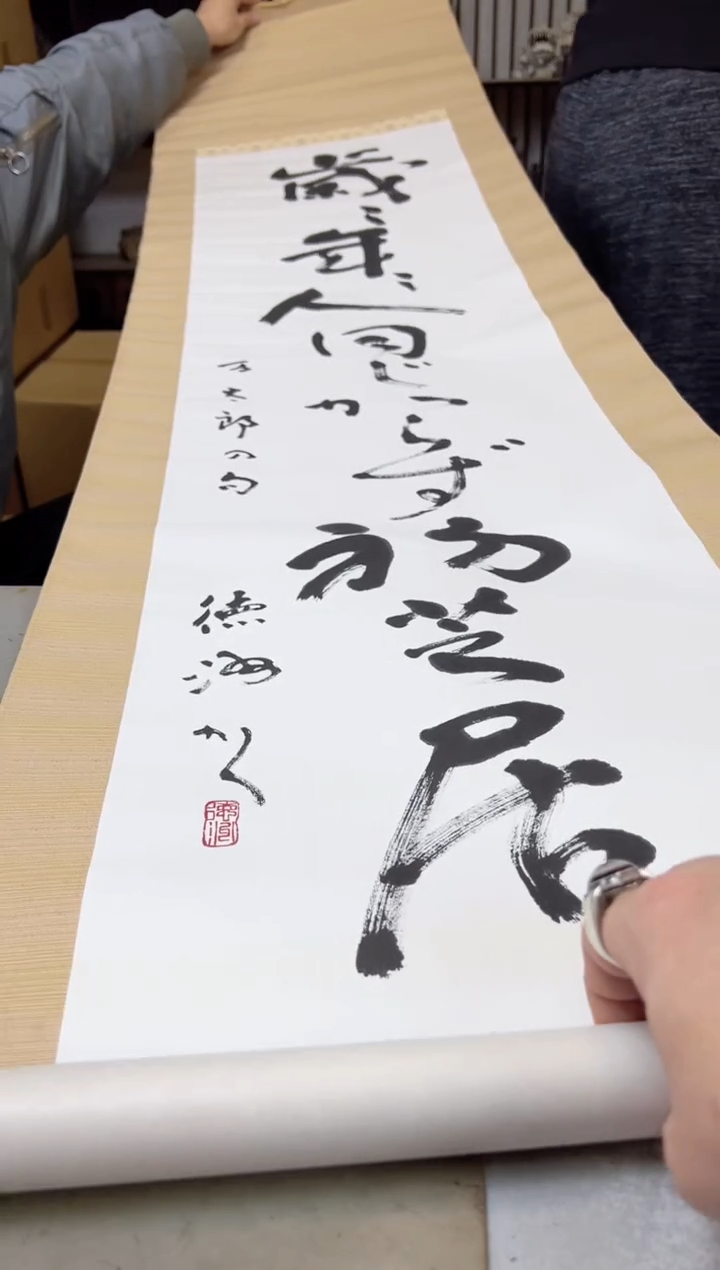 歳々年々人同じからず初芝居
万太郎の句
徳海かく